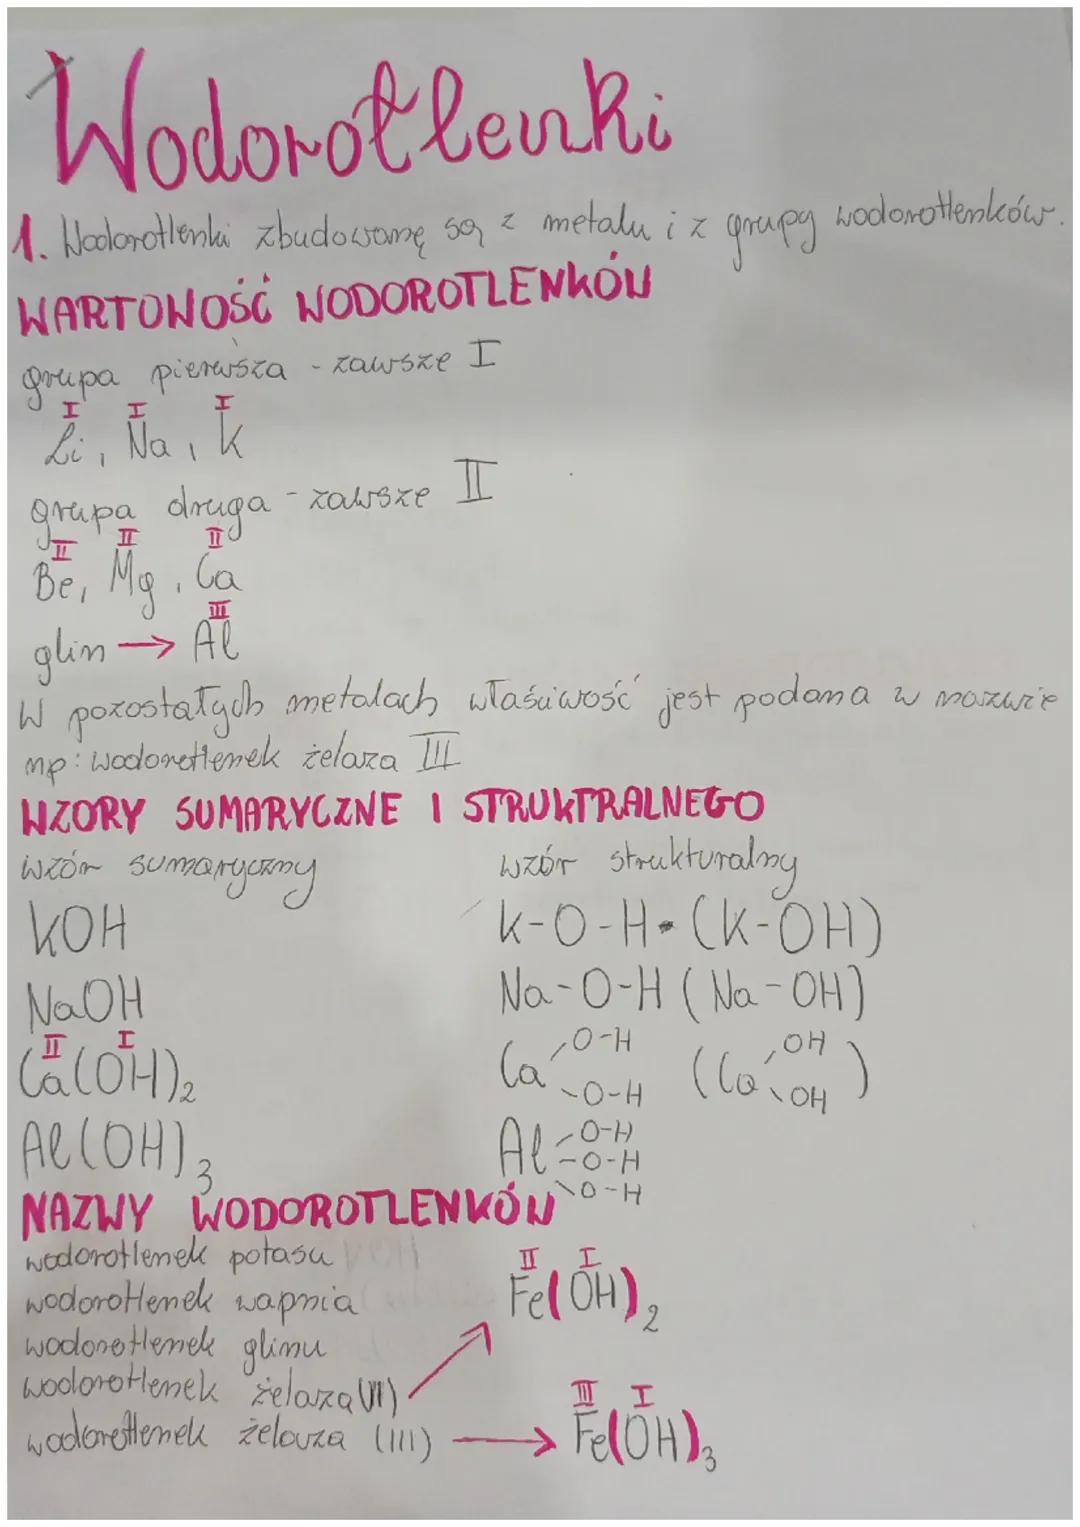 Wodorotlenki
1. Wodorotlenki zbudowane są z metalu i z grupy wodorotlenków.
WARTOWOŚĆ WODOROTLENKÓW
grupa pierwsza - zawsze I
I I I
Li, Na, K
grupa druga - zawsze II
II II II
Be, Mg, Ca
III
glin → Al
W pozostałych metalach właściwość jest podana w nazwie
np: wodorotlenek żelaza III
WZORY SUMARYCZNE I STRUKTRALNEGO
wzór sumaryczny wzór strukturalny
KOH K-O-H (K-OH)
NaOH Na-O-H (Na-OH)
II I O-H OH
Ca(OH)2 Ca (Ca )
O-H OH
Al(OH)3 Al O-H
O-H
O-H
NAZWY WODOROTLENKÓW
wodorotlenek potasu
II I
wodorotlenek wapnia Fe(OH)2
wodorotlenek glinu
wodorotlenek żelaza
III I
wodorotlenek żelaza (III) → Fe(OH)3